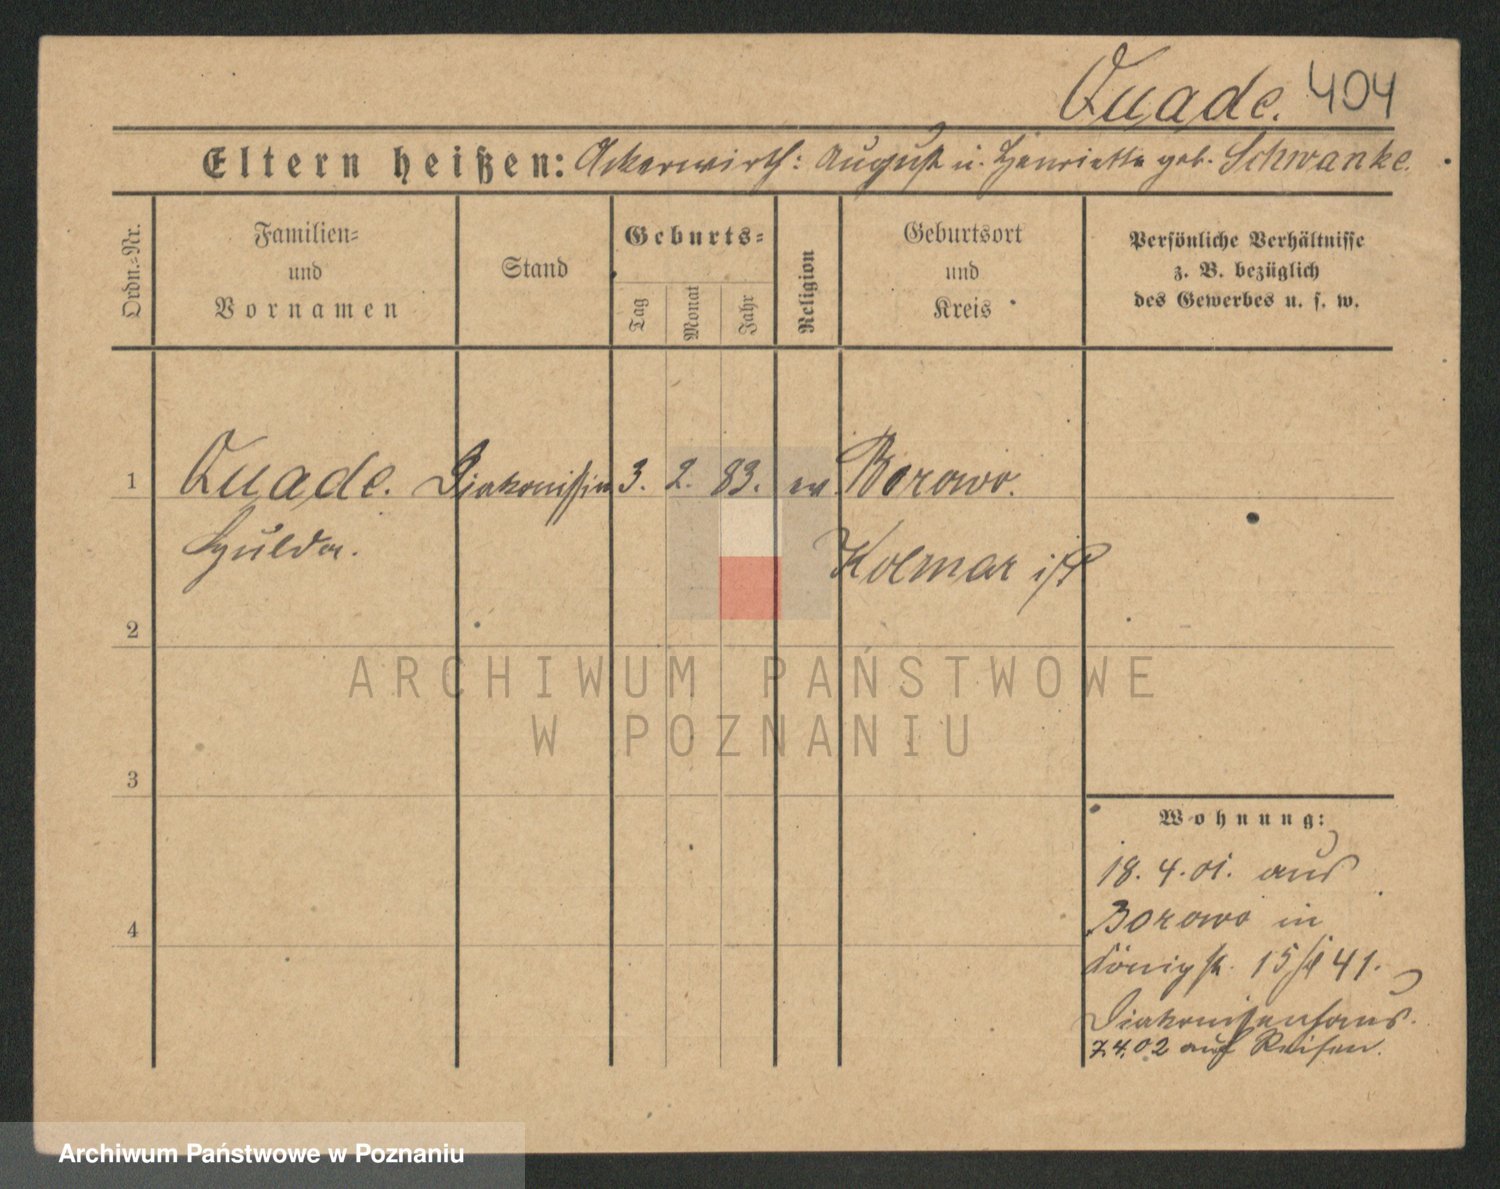 Quade. 404
Eltern heißen: Ackerwirth: August u. Henriette geb. Schwanke.
Ordn.-Nr.
Familien-
und
Vornamen
Stand
Geburts-
Tag
Monat
Jahr
Religion
Geburtsort
und
Kreis
Persönliche Verhältnisse
z. B. bezüglich
des Gewerbes u. s. w.
1 Quade. Diakonissin 3. 2. 83. ev Borowo.
Hulda. Kolmar i/P
2
ARCHIWUM PAŃSTWOWE
W POZNANIU
3
Wohnung:
18. 4. 01. aus
Borowo in
4
Königst. 15 41.
Diakonissenhaus.
7.4.02 auf Reisen.
Archiwum Państwowe w Poznaniu